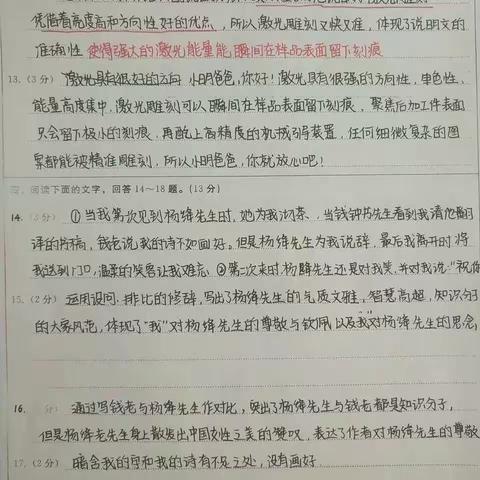 凭借着亮度高和方向性好的优点，所以激光雕刻又快又准，体现了说明文的
准确性 使得强大的激光能量能瞬间在样品表面留下刻痕
13.（3分）激光具有很好的方向 小明爸爸，你好！激光具有很强的方向性，单色性，
能量高度集中，激光雕刻可以瞬间在样品表面留下刻痕，聚焦后加工件表面
只会留下极小的刻痕，再配上高精度的机械引导装置，任何细微复杂的图
案都能被精准雕刻，所以小明爸爸，你就放心吧！
阅读下面的文字，回答14～18题。（13分）
14. ①当我第一次见到杨绛先生时，她为我沏茶、当钱钟书先生看到我请他翻
译的片稿，钱老说我的诗不如画好。但是杨绛先生为我说辞，最后我离开时将
我送到门口，温柔的笑容让我难忘 ②第二次来时，杨绛先生还是对我笑，并对我说：“祝你
15.（2分）运用设问、排比的修辞，写出了杨绛先生的气质文雅，智慧高超，知识分子
的大家风范，体现了“我”对杨绛先生的尊敬与钦佩 以及我对杨绛先生的思念，
16. 通过写钱老与杨绛先生作对比，突出了杨绛先生与钱老都是知识分子，
但是杨绛老先生身上散发出中国女性之美的赞叹，表达了作者对杨绛先生的尊敬
17.（2分）暗含我的字和我的诗有不足之处，没有画好